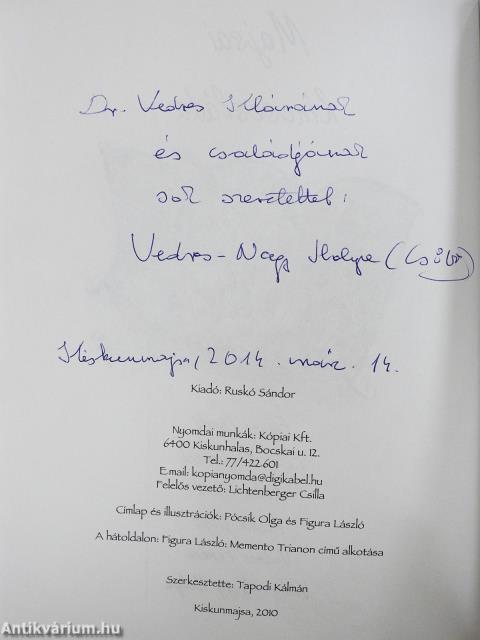 Majsai
Dr. Vedres Klárának
és családjának
sok szeretettel:
Vedres-Nagy Ibolya (Csibe)
Kiskunmajsa, 2014. márc. 14.
Kiadó: Ruskó Sándor
Nyomdai munkák: Kópiai Kft.
6400 Kiskunhalas, Bocskai u. 12.
Tel.: 77/422 601
E mail: kopianyomda@digikabel.hu
Felelős vezető: Lichtenberger Csilla
Címlap és illusztrációk: Pócsik Olga és Figura László
A hátoldalon: Figura László: Memento Trianon című alkotása
Szerkesztette: Tapodi Kálmán
Kiskunmajsa, 2010
Antikvárium.hu